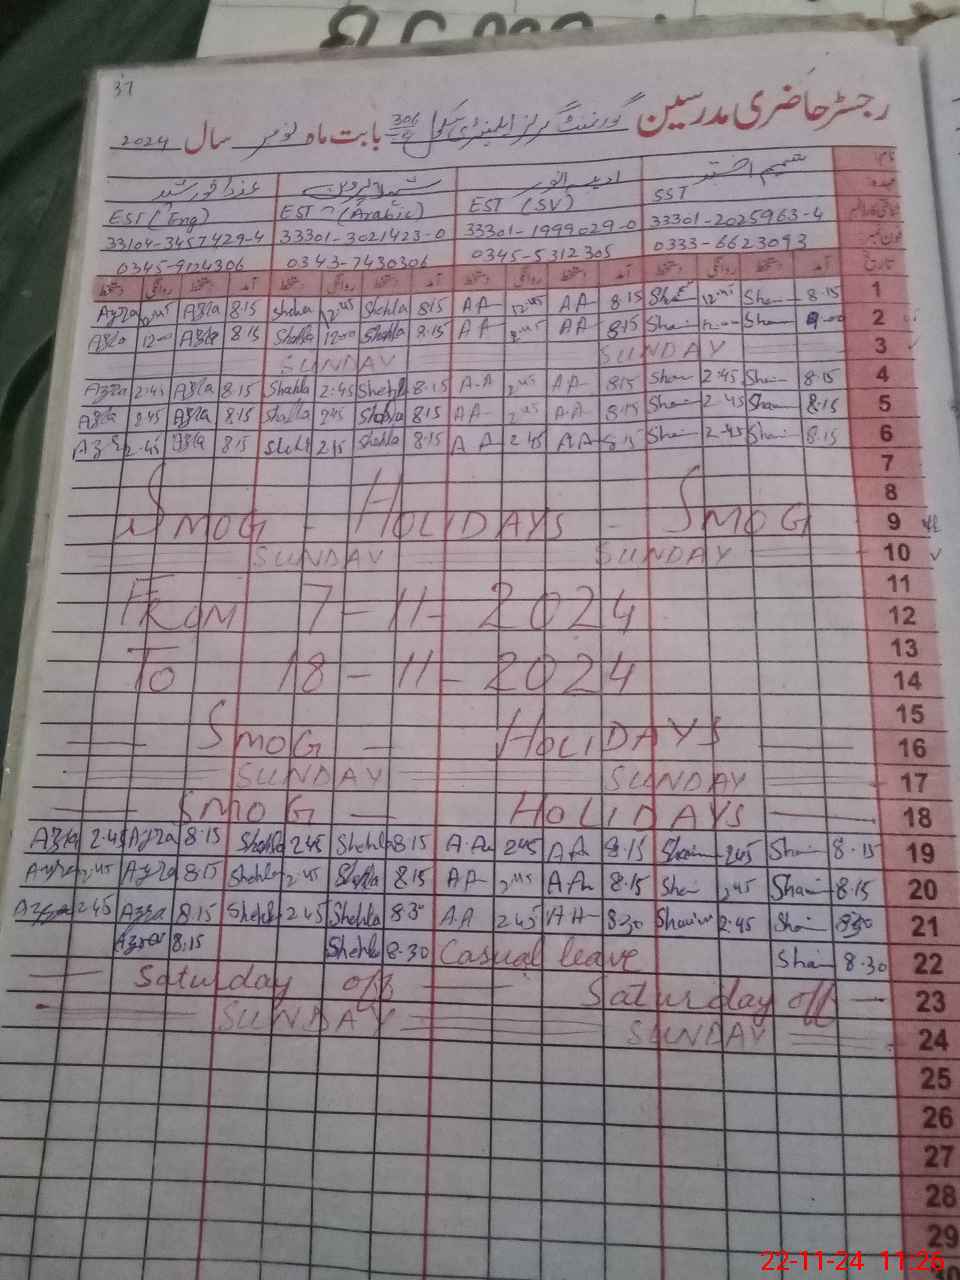 37
رجسٹر حاضری مدرسین گورنمنٹ گرلز ایلیمنٹری سکول 306 بابت ماہ نومبر سال 2024
شمیم اختر
SST EST (SV) EST (Arabic) EST (Eng)
33301-2025963-4 33301-1999029-0 33301-3021423-0 33104-3457429-4
0333-6623093 0345-5312305 0343-7430306 0345-9124306
تاریخ آمد دستخط روانگی دستخط آمد دستخط روانگی دستخط آمد دستخط روانگی دستخط آمد دستخط روانگی دستخط
Azra 12:45 Azra 8.15 Shehla 12:45 Shehla 8.15 AA 12:45 AA 8.15 Sha 12:45 Sha 8.15 1
Azra 12:00 Azra 8.15 Shehla 12:00 Shehla 8.15 AA AA 8:15 Sha Sha 9:00 2
SUNDAY SUNDAY 3
Azra 2:45 Azra 8.15 Shehla 2:45 Shehla 8.15 A.A 2:45 AA 8.15 Sha 2.45 Sha 8.15 4
Azra 2:45 Azra 8.15 Shehla 2:45 Shehla 8.15 AA 2:45 A.A 8.15 Sha 2.45 Sha 8.15 5
Azra 2.45 Azra 8.15 Shehla 2:45 Shehla 8.15 AA 2.45 AA 8.15 Sha 2.45 Sha 8.15 6
7
8
SMOG - HOLIDAYS - SMOG 9
SUNDAY SUNDAY 10
11
FROM 7-11-2024 12
13
TO 18-11-2024 14
15
SMOG - HOLIDAYS 16
SUNDAY SUNDAY 17
SMOG - HOLIDAYS 18
Azra 2.45 Azra 8.15 Shehla 2.45 Shehla 8.15 A.A 2.45 A.A 8.15 Sha 2.45 Sha 8.15 19
Azra 2.45 Azra 8.15 Shehla 2.45 Shehla 8.15 AA 2.45 A.A 8.15 Sha 2.45 Sha 8.15 20
Azra 2.45 Azra 8.15 Shehla 2.45 Shehla 8.30 A.A 2.45 AA 8.30 Sha 2.45 Sha 8.30 21
Azra 8.15 Shehla 8.30 Casual leave Sha 8.30 22
Saturday off Saturday off 23
SUNDAY SUNDAY 24
25
26
27
28
29
22-11-24 11:26